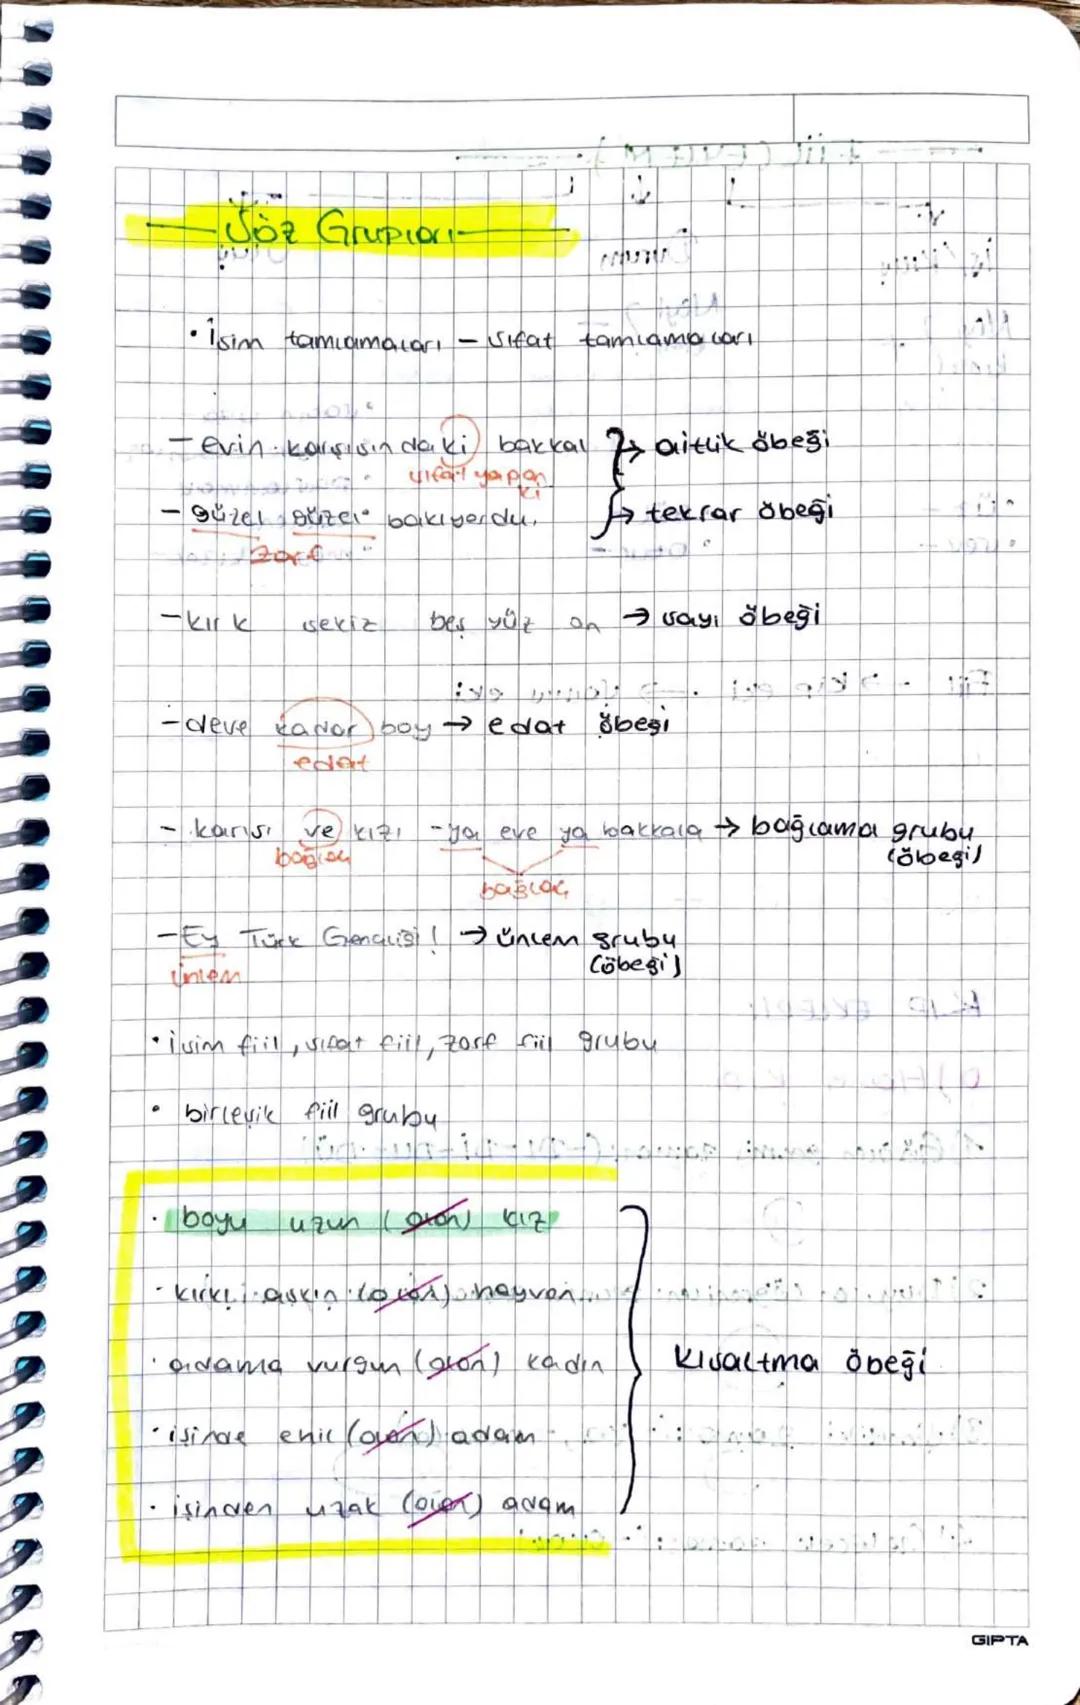 Söz Grupları
• İsim tamlamaları - Sıfat tamlamaları
- evin karşısındaki bakkal → aitlik öbeği
sıfat yapan
ki
- güzel güzel bakıyordu. → tekrar öbeği
zarf
- kırk sekiz beş yüz on → sayı öbeği
- deve kadar boy → edat öbeği
edat
- karısı ve kızı - ya eve ya bakkala → bağlama grubu
bağlaç
(öbeği)
bağlaç
- Ey Türk Gençliği! → ünlem grubu
ünlem
(öbeği)
• isim fiil, sıfat fiil, zarf fiil grubu
• birleşik fiil grubu
• boyu uzun (olan) kız
• kırkı aşkın (olan) hayvan
• adama vurgun (olan) kadın
Kısaltma öbeği
• işinde ehil (olan) adam
• işinden uzak (olan) adam
GIPTA